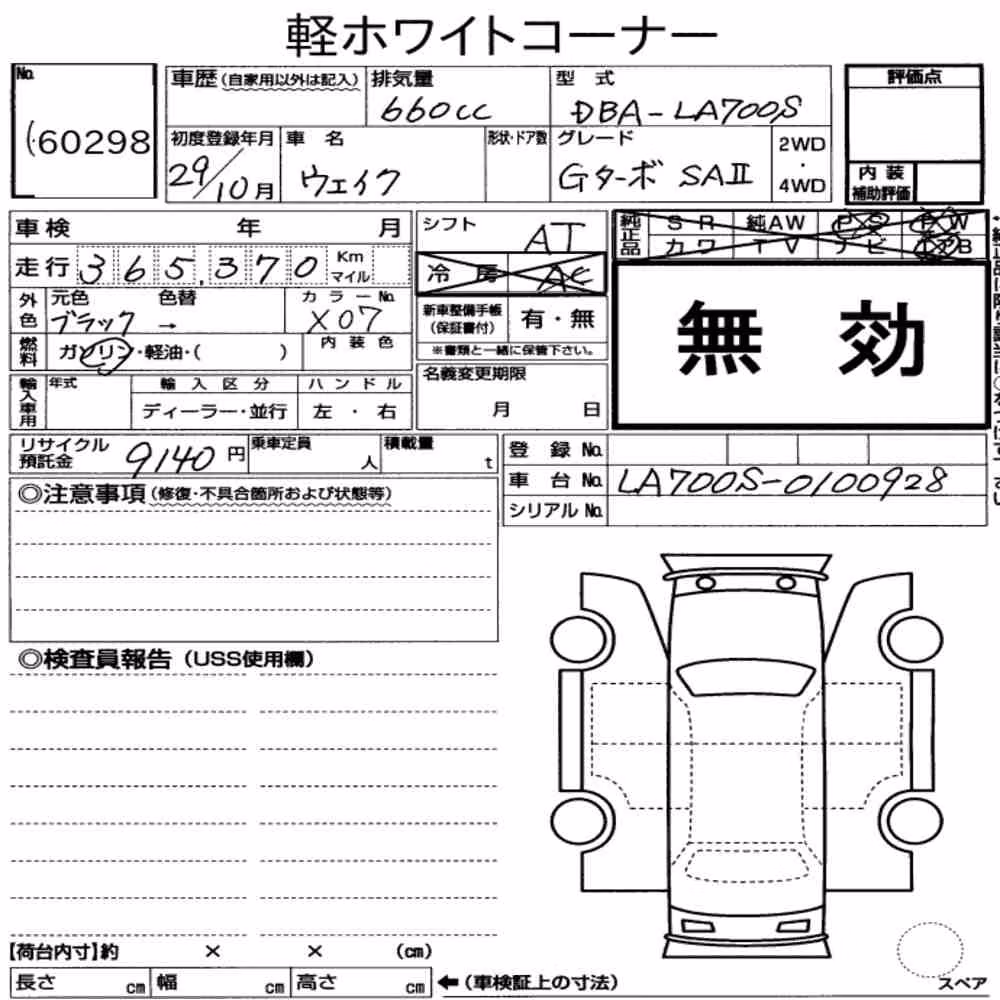 軽ホワイトコーナー
No.
60298
車歴(自家用以外は記入)
排気量
660cc
型 式
DBA-LA700S
評価点
初度登録年月
29/10月
車 名
ウェイク
形状・ドア数
グレード
Gターボ SAⅡ
2WD
・
4WD
内 装
補助評価
車検 年 月
シフト
AT
純正品
S R 純AW P S P W
カ ワ T V ナ ビ
走行 365,370 Km
マイル
冷 房 AC
無 効
外色
元色 色替
ブラック →
カ ラ ー No.
X07
新車整備手帳
(保証書付)
有・無
※書類と一緒に保管下さい。
燃料
ガソリン・軽油・( )
内 装 色
名義変更期限
月 日
輸入車用
年式
輸 入 区 分
ハ ン ド ル
ディーラー・並行
左 ・ 右
リサイクル
預託金
9140 円
乗車定員
人
積載量
t
登 録 No.
車 台 No. LA700S-0100928
シリアル No.
◎注意事項(修復・不具合箇所および状態等)
◎検査員報告(USS使用欄)
【荷台内寸】約 × × (cm)
長さ cm 幅 cm 高さ cm ←(車検証上の寸法)
スペア